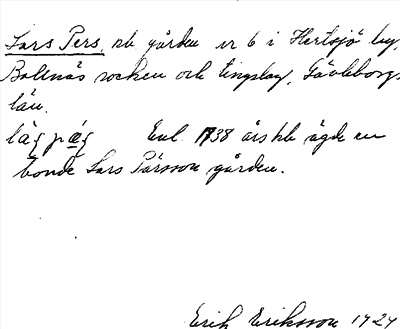 Lars Pers, sb gården nr 6 i Hertsjö by,
Bollnäs socken och tingslag, Gävleborgs
län.
Enl. 1738 års hb ägde en
bonde Lars Pärsson gården.
Erik Eriksson 1924